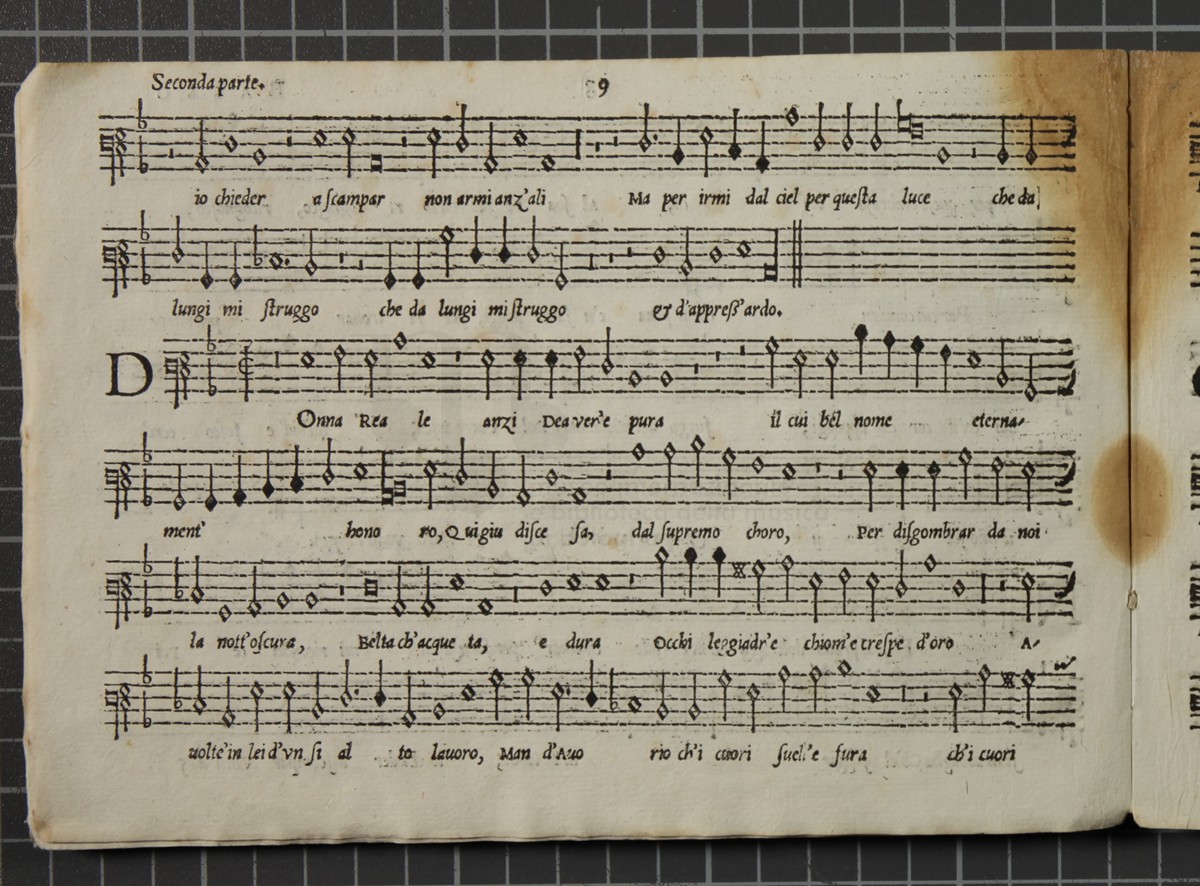 Seconda parte. 9
io chieder a ſcampar non armi anz'ali Ma per irmi dal ciel per queſta luce che da
lungi mi ſtruggo che da lungi mi ſtruggo & d'appreſſ'ardo.
D
Onna Rea le anzi Dea ver'e pura il cui bel nome eterna-
ment' hono ro, Qui giu diſce ſa, dal ſupremo choro, Per diſgombrar da noi
la nott'oſcura, Belta ch'acque ta, e dura Occhi leggiadr'e chiom'e creſpe d'oro A-
uolte'in lei d'vn ſi al to lauoro, Man d'Auo rio ch'i cuori ſuell'e fura ch'i cuori